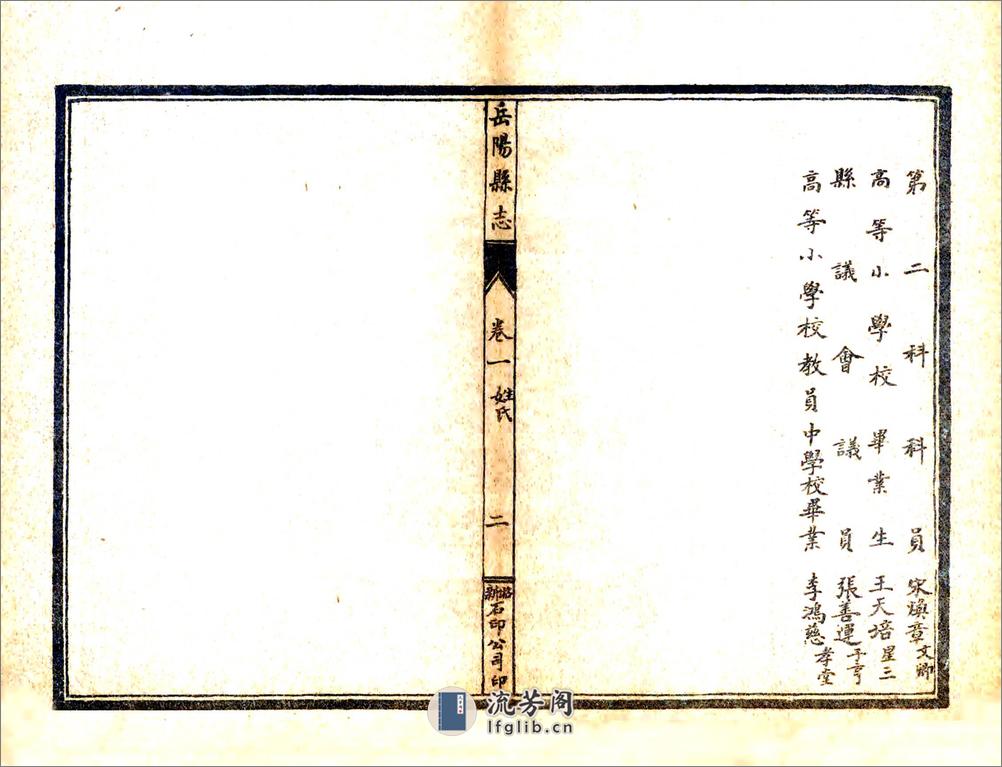 第二科科員 宋煥章 文卿
高等小學校畢業生 王天培 星三
縣議會議員 張善運 子亨
高等小學校教員中學校畢業 李鴻慈 孝堂
岳陽縣志
卷一 姓氏
二
石印公司印
流芳阁
lfglib.cn